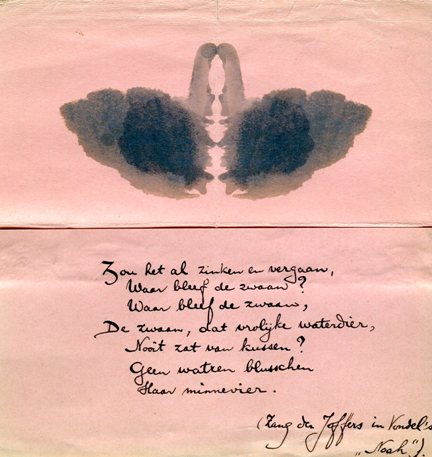 Zou het al zinken en vergaan,
Waar bleef de zwaan?
Waar bleef de zwaan,
De zwaan, dat vrolijke waterdier,
Nooit zat van kussen?
Geen watren blusschen
Haar minnevier.
(Zang der Joffers in Vondel's
„Noah").